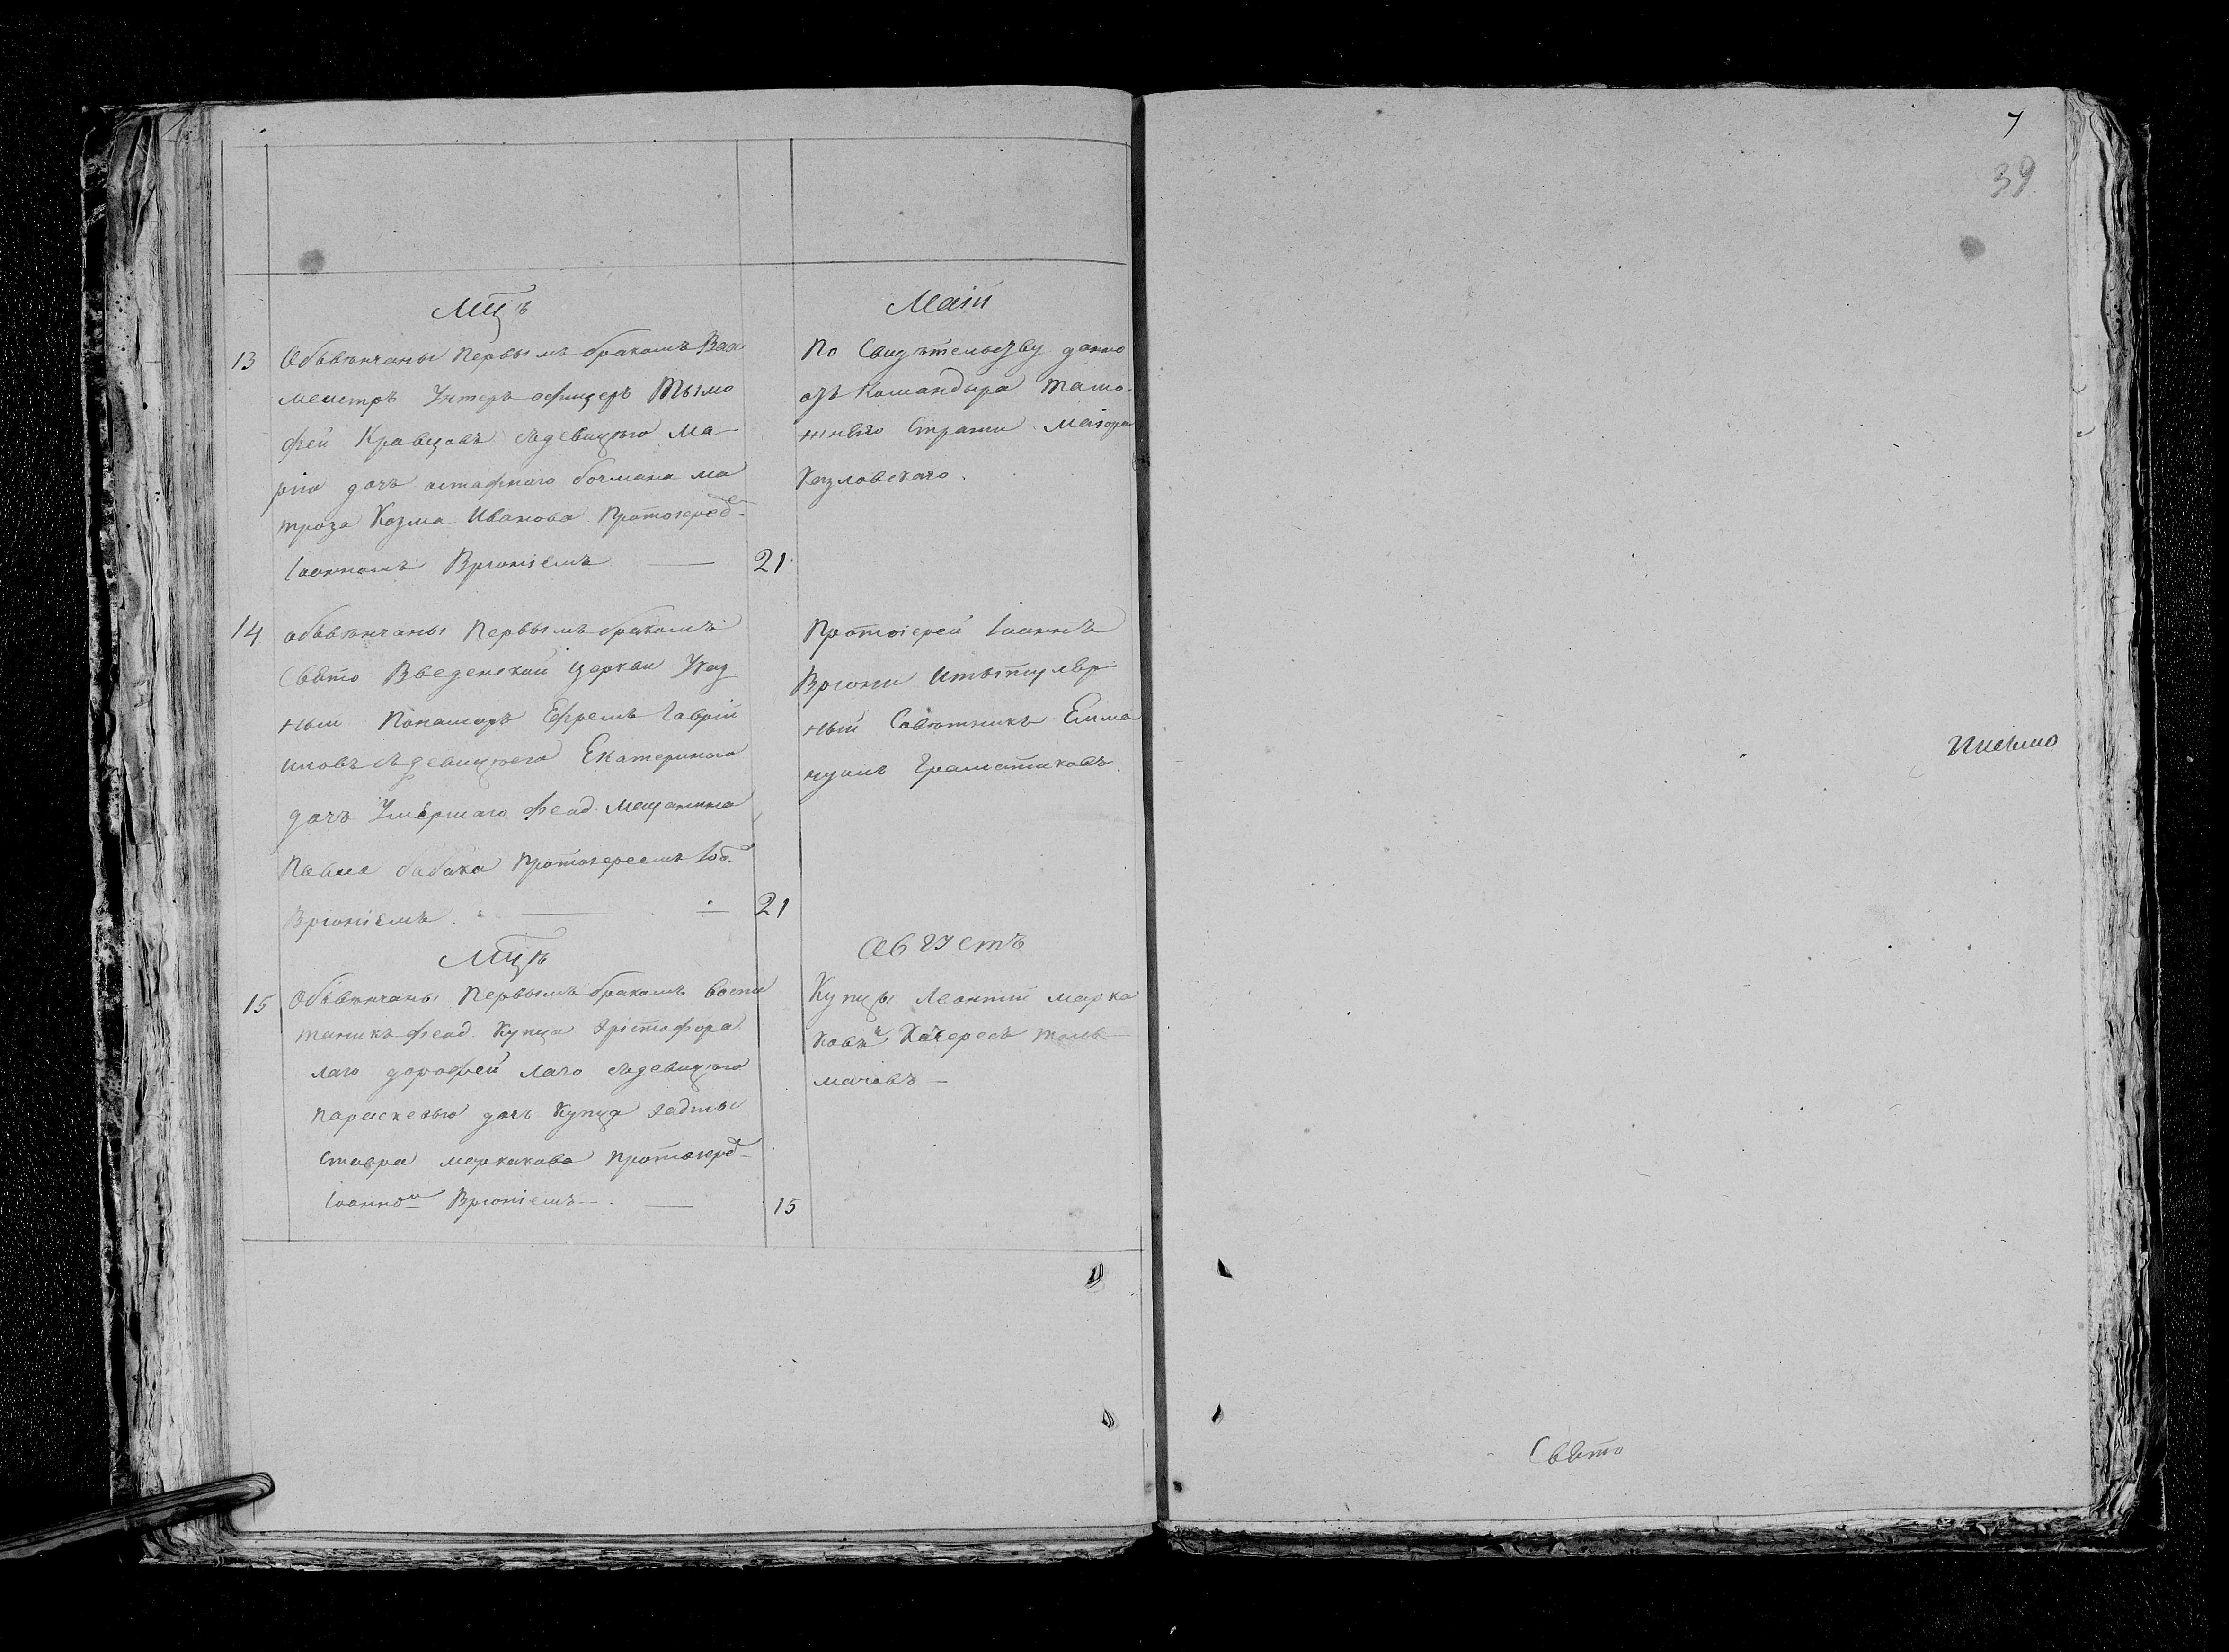 Мцъ
Маіи
13 Обьвѣнчаны первымъ бракомъ Вах
местръ Унтеръ офицеръ Тымо
фей Кравцовъ съдевицею Ма
рію дочь астафного боцмана ма
троза Козма Иванова Протоіерей
Іоанномъ Вріоніемъ — 21
По Свидѣтельству данно
отъ Командыра Тамо
жнѣго Стражи Маіора
Козловскаго.
14 обьвѣнчаны Первымъ бракомъ
Свѣто Введенской церкви Указ
ный Панамарь Ефремъ Гаврій
иловъ съдевицрею Екатериною
дочъ Умѣршаго Феод. Мещанина
Павла бабака Протоіереемъ Іо
Вріоніемъ. — 21
Протоіерей Іоаннъ
Вріони итытулѣр
ный Совѣтникъ Емма
нуилъ Граматиковъ.
Мцъ
Августъ
15 Обьвѣнчаны Первымъ бракомъ воспи
таникъ Феод. Купца Хрістофора
лаго дорофей лаго съдевицрею
Параскевью дочъ Купца хаджы
Ставра маркакова Протоіерей
Іоанном Вріоніемъ — 15
Купцы Леонтий Марка
ковъ и Хачересъ толь
мачовъ —
7
39
Письмо
Свѣто